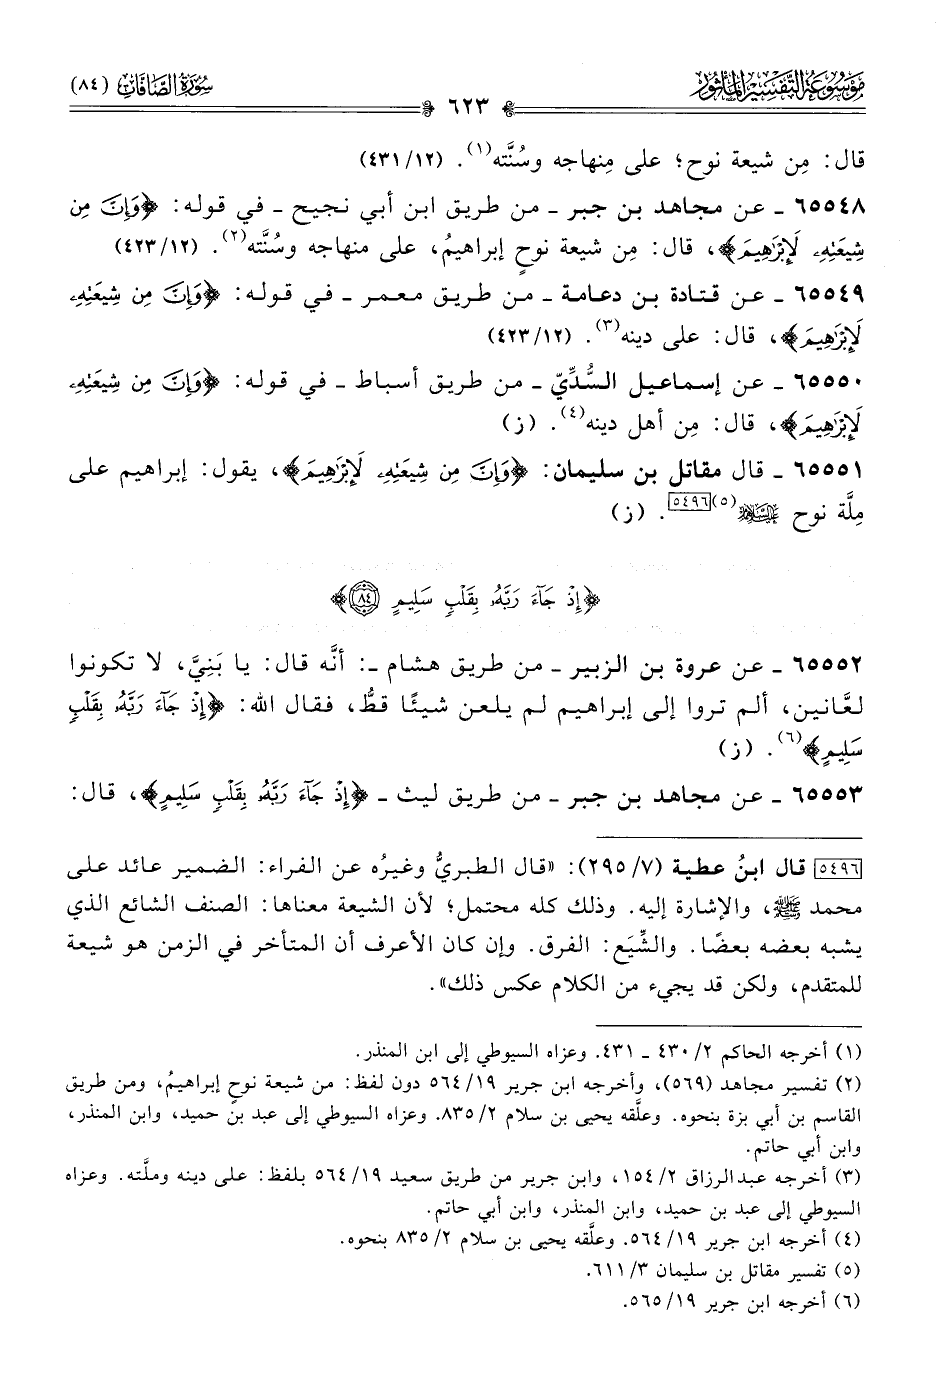 موسوعة التفسير المأثور
٦٢٣
سورة الصافات (٨٤)
قال: مِن شيعة نوح؛ على مِنهاجه وسُنَّته(١). (٤٣١/١٢)
٦٥٥٤٨ ـ عن مجاهد بن جبر ـ من طريق ابن أبي نجيح ـ في قوله: ﴿وَإِنَّ مِن
شِيعَتِهِۦ لَإِبْرَٰهِيمَ﴾، قال: مِن شيعة نوحٍ إبراهيمُ، على منهاجه وسُنَّته(٢). (٤٢٣/١٢)
٦٥٥٤٩ ـ عن قتادة بن دعامة ـ من طريق معمر ـ في قوله: ﴿وَإِنَّ مِن شِيعَتِهِۦ
لَإِبْرَٰهِيمَ﴾، قال: على دينه(٣). (٤٢٣/١٢)
٦٥٥٥٠ ـ عن إسماعيل السُّدِّيّ ـ من طريق أسباط ـ في قوله: ﴿وَإِنَّ مِن شِيعَتِهِۦ
لَإِبْرَٰهِيمَ﴾، قال: مِن أهل دينه(٤). (ز)
٦٥٥٥١ ـ قال مقاتل بن سليمان: ﴿وَإِنَّ مِن شِيعَتِهِۦ لَإِبْرَٰهِيمَ﴾، يقول: إبراهيم على
مِلَّة نوح عليه السلام(٥)[٥٤٩٦]. (ز)
﴿إِذْ جَآءَ رَبَّهُۥ بِقَلْبٍ سَلِيمٍ ٨٤﴾
٦٥٥٥٢ ـ عن عروة بن الزبير ـ من طريق هشام ـ: أنَّه قال: يا بَنِيَّ، لا تكونوا
لعَّانين، ألم تروا إلى إبراهيم لم يلعن شيئًا قطُّ، فقال الله: ﴿إِذْ جَآءَ رَبَّهُۥ بِقَلْبٍ
سَلِيمٍ﴾(٦). (ز)
٦٥٥٥٣ ـ عن مجاهد بن جبر ـ من طريق ليث ـ ﴿إِذْ جَآءَ رَبَّهُۥ بِقَلْبٍ سَلِيمٍ﴾، قال:
[٥٤٩٦] قال ابنُ عطية (٢٩٥/٧): «قال الطبريُّ وغيرُه عن الفراء: الضمير عائد على
محمد ﷺ، والإشارة إليه. وذلك كله محتمل؛ لأن الشيعة معناها: الصنف الشائع الذي
يشبه بعضه بعضًا. والشِّيَع: الفرق. وإن كان الأعرف أن المتأخر في الزمن هو شيعة
للمتقدم، ولكن قد يجيء من الكلام عكس ذلك».
(١) أخرجه الحاكم ٢/ ٤٣٠ ـ ٤٣١. وعزاه السيوطي إلى ابن المنذر.
(٢) تفسير مجاهد (٥٦٩)، وأخرجه ابن جرير ١٩/ ٥٦٤ دون لفظ: من شيعة نوحٍ إبراهيمُ، ومن طريق
القاسم بن أبي بزة بنحوه. وعلَّقه يحيى بن سلام ٢/ ٨٣٥. وعزاه السيوطي إلى عبد بن حميد، وابن المنذر،
وابن أبي حاتم.
(٣) أخرجه عبدالرزاق ٢/ ١٥٤، وابن جرير من طريق سعيد ١٩/ ٥٦٤ بلفظ: على دينه وملَّته. وعزاه
السيوطي إلى عبد بن حميد، وابن المنذر، وابن أبي حاتم.
(٤) أخرجه ابن جرير ١٩/ ٥٦٤. وعلَّقه يحيى بن سلام ٢/ ٨٣٥ بنحوه.
(٥) تفسير مقاتل بن سليمان ٣/ ٦١١.
(٦) أخرجه ابن جرير ١٩/ ٥٦٥.